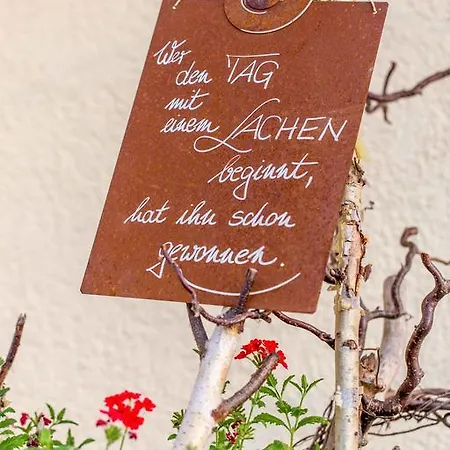 Wer
den TAG
mit
einem LACHEN
beginnt,
hat ihn schon
gewonnen.